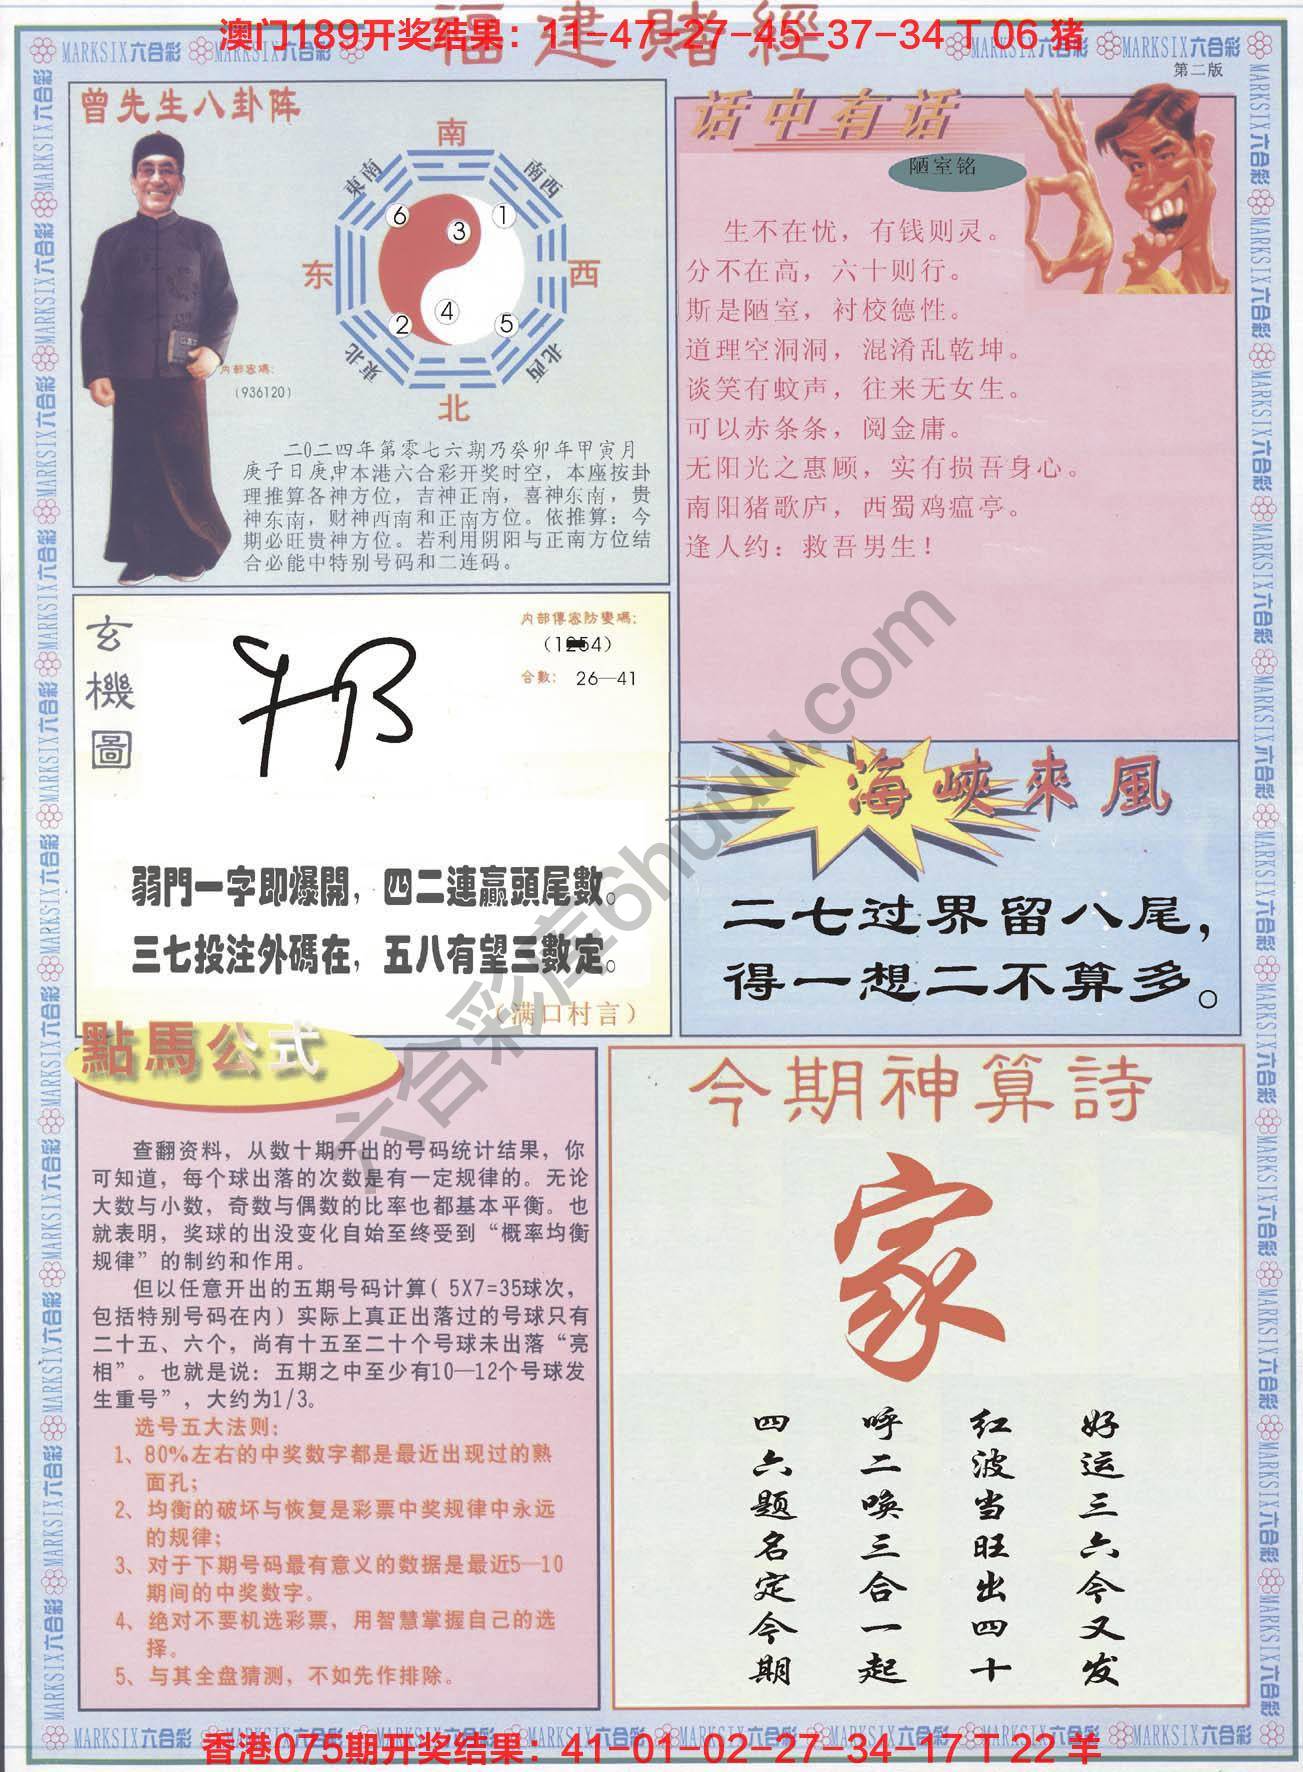 福建賭經
澳门189开奖结果：11-47-27-45-37-34 T 06 猪
MARKSIX六合彩
第二版
曾先生八卦阵
南
東南
南西
6
1
3
东
西
4
2
5
東北
北西
北
内部密碼：
(936120)
二0二四年第零七六期乃癸卯年甲寅月
庚子日庚申本港六合彩开奖时空，本座按卦
理推算各神方位，吉神正南，喜神东南，贵
神东南，财神西南和正南方位。依推算：今
期必旺贵神方位。若利用阴阳与正南方位结
合必能中特别号码和二连码。
话中有话
陋室铭
生不在忧，有钱则灵。
分不在高，六十则行。
斯是陋室，衬校德性。
道理空洞洞，混淆乱乾坤。
谈笑有蚊声，往来无女生。
可以赤条条，阅金庸。
无阳光之惠顾，实有损吾身心。
南阳猪歌庐，西蜀鸡瘟亭。
逢人约：救吾男生！
玄機圖
内部傳密防變碼：
合數： 26—41
弱門一字即爆開，四二連贏頭尾數。
三七投注外碼在，五八有望三數定。
（满口村言）
海峽來風
二七过界留八尾，
得一想二不算多。
六合彩库6huuu.com
點馬公式
查翻资料，从数十期开出的号码统计结果，你
可知道，每个球出落的次数是有一定规律的。无论
大数与小数，奇数与偶数的比率也都基本平衡。也
就表明，奖球的出没变化自始至终受到“概率均衡
规律”的制约和作用。
但以任意开出的五期号码计算( 5X7=35球次，
包括特别号码在内）实际上真正出落过的号球只有
二十五、六个，尚有十五至二十个号球未出落“亮
相”。也就是说：五期之中至少有10—12个号球发
生重号”，大约为1/3。
选号五大法则：
1、80%左右的中奖数字都是最近出现过的熟
面孔；
2、均衡的破坏与恢复是彩票中奖规律中永远
的规律；
3、对于下期号码最有意义的数据是最近5—10
期间的中奖数字。
4、绝对不要机选彩票，用智慧掌握自己的选
择。
5、与其全盘猜测，不如先作排除。
今期神算詩
家
好运三六今又发
红波当旺出四十
呼二唤三合一起
四六题名定今期
香港075期开奖结果：41-01-02-27-34-17 T 22 羊